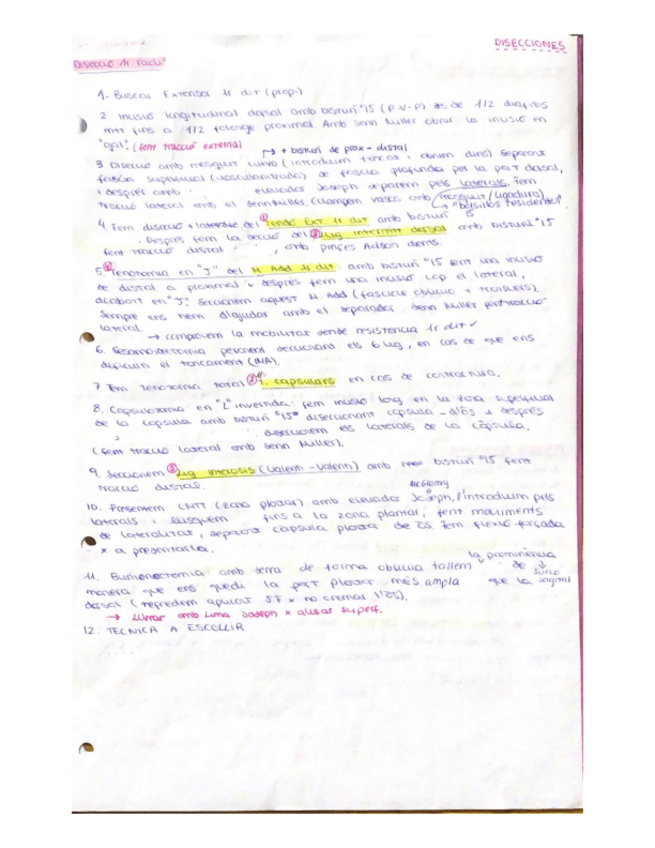 DISECCIONES
Disecció 1r radi
1. Buscar Extensor 1r dit (propi)
2. Incisió longitudinal dorsal amb bisturí nº15 (P-V-P) des de 1/2 diàfisis
mtt fins a 1/2 falange proximal. Amb Senn Miller obrir la incisió en
"ojal". (fent tracció externa) → + bisturí de prox - distal
3 Disecció amb mosquit curvo (introduim tancat i obrim dins) separant
fàscia superficial (vascularitzada) de fàscia profunda per la part dorsal,
i després amb elevador Joseph separem pels laterals. Fem
tracció lateral amb el Senn Miller. (Clampem vasos amb mosquit/ligadura)
→ "bolsillos residentes".
4. Fem disecció + lateralció del ① Tendó Ext. 1r dit amb bisturí 15
· Després fem la secció del ② Lig intermtt dorsal amb bisturí nº15
fent tracció distal , amb pinces Adson dents.
5 Tenotomia en "J" del M Add 1r dit: amb bisturí nº15 fent una incisió
de distal a proximal i després fem una incisió cap el lateral,
acabant en "J", seccionem aquest M. Add (fascicle oblicuo + transvers).
Sempre ens hem d'ajudar amb el separador Senn Miller per tracció
lateral. → comprovem la mobilitat sense resistencia 1r dit ✓
6. Sesamoidectomia peroneal seccionant els 6 lig, en cas de que ens
dificulti el trencament (IMA).
7 Fem Tenotomia total capsulars en cas de contractura.
8. Capsulotomia en "L" invertida: fem incisió long en la zona superficial
de la capsula amb bisturí "15" diseccionant capsula - d'òs i després
diseccionem els laterals de la càpsula,
(fem tracció lateral amb Senn Miller).
9. Seccionem ③ Lig interosis (Valenti - Valenti) amb bisturí nº15 fent
tracció distal.
McGlamry
10. Presentem CMTT (zona plantar) amb elevador Joseph, l'introduim pels
laterals i busquem fins a la zona plantar, fent moviments
de lateralitat, separant càpsula plantar de l'òs. Fem flexió forçada
x a presentarla.
11. Bunionectomia amb serra de forma oblicua tallem la prominència de
manera que ens quedi la part plantar més ampla que la surco sagital
dorsal (refredem aplicar S.F x no cremar l'òs).
→ Llimar amb Lima Joseph x alisar superf.
12. TÈCNICA A ESCOLLIR